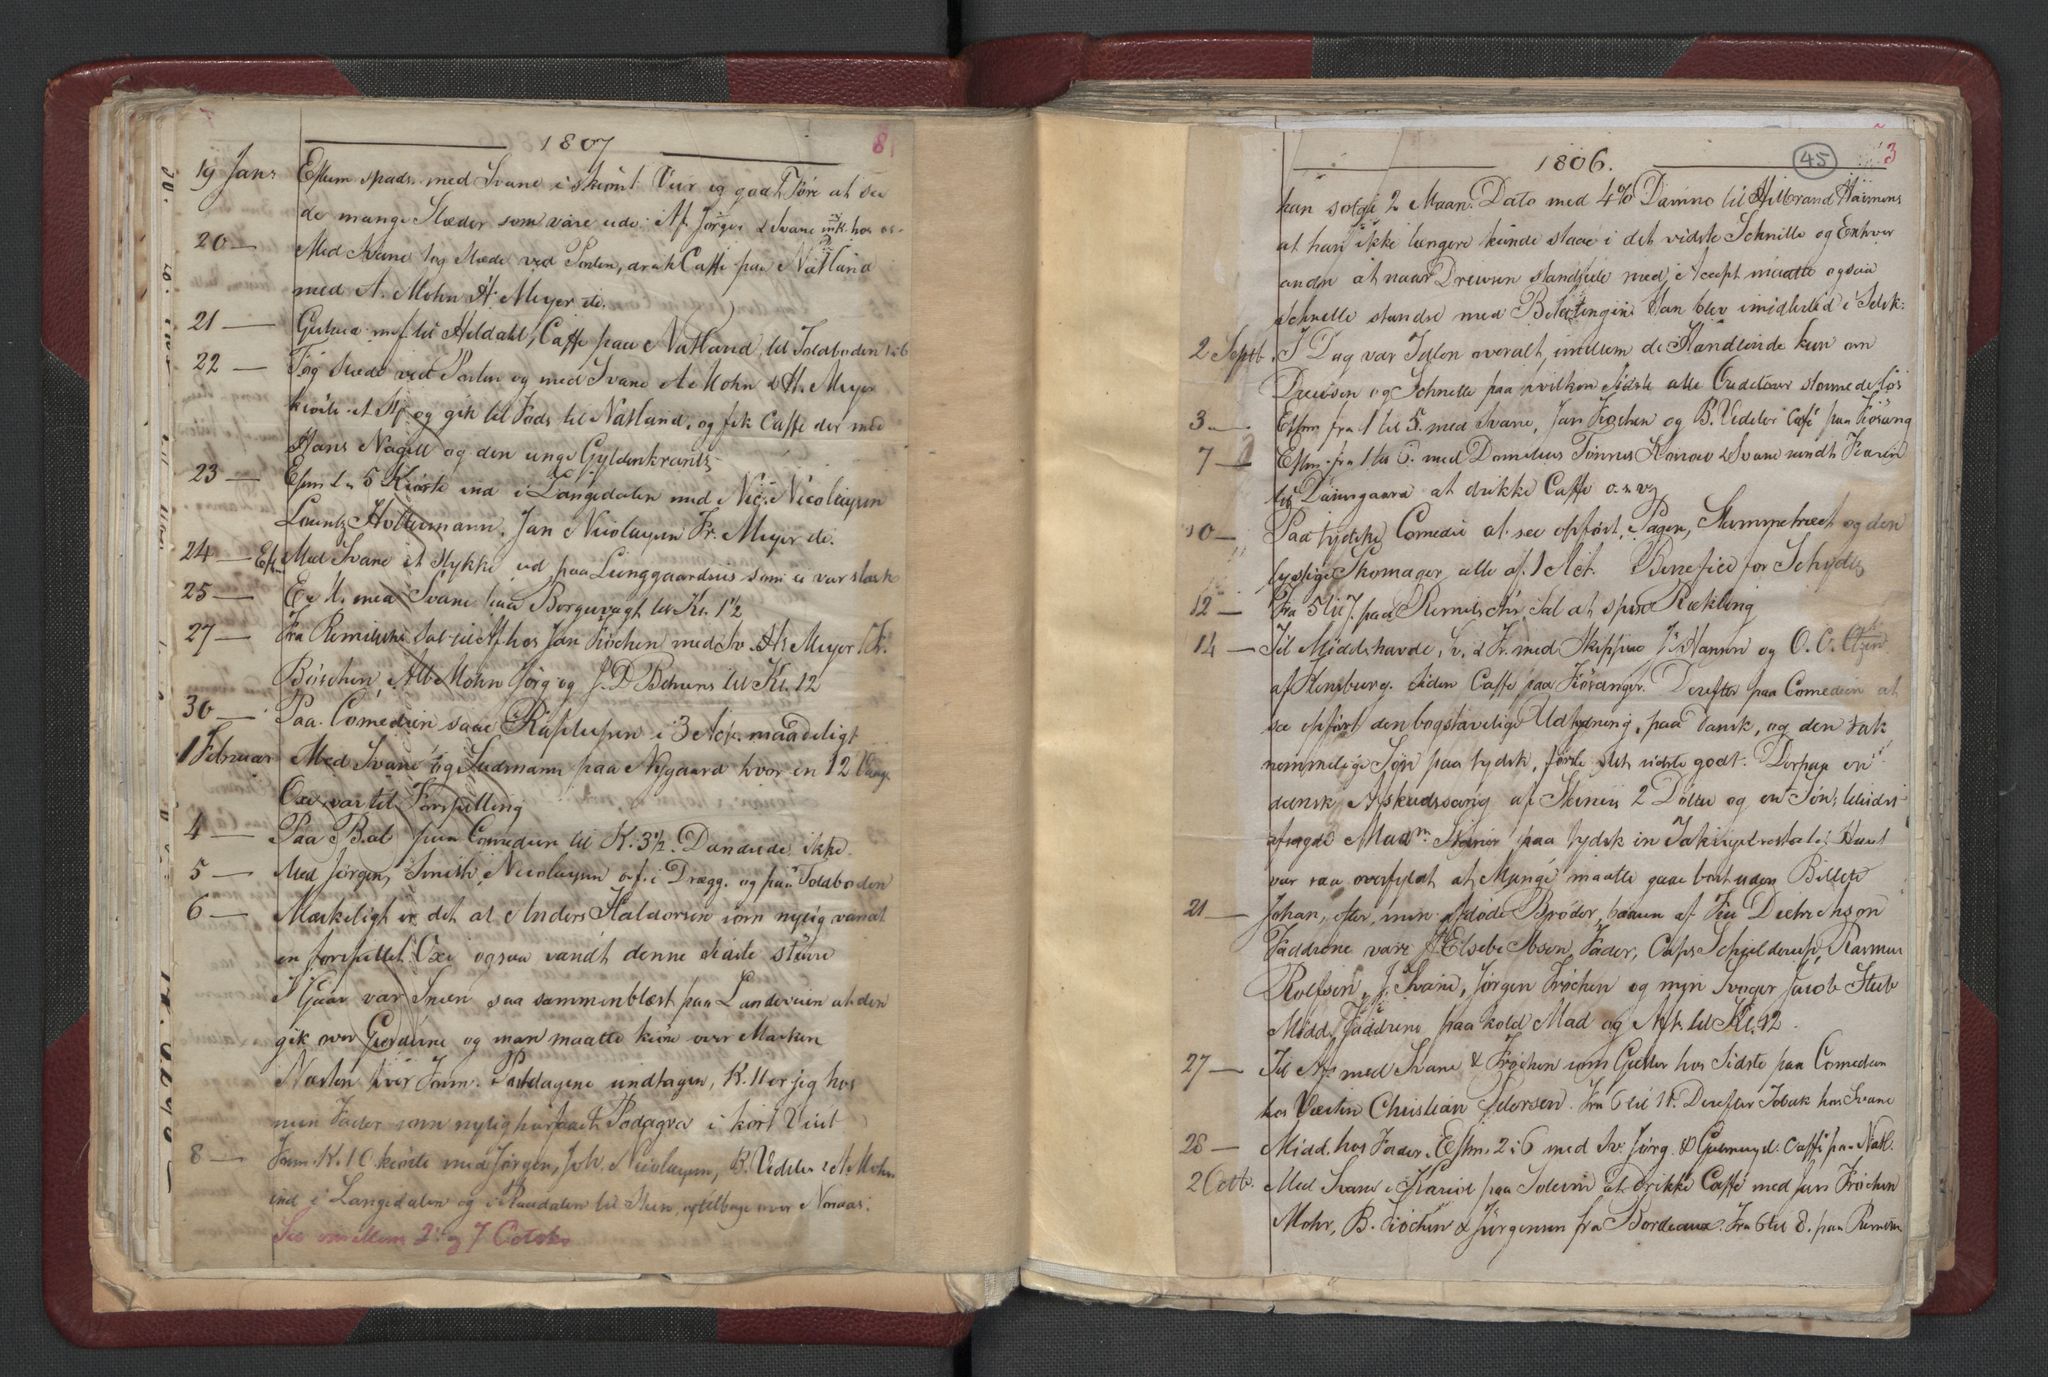 1807
8
19 Janr Eftm spads. med Svane i skiönt Veir og godt Före at see
de mange Slæder som vare ude. Af. Jörgen & Svane hos os
20 — Med Svane tog Slæde ved Porten, drak Caffe paa Natland
med A. Mohn H. Meyer de.
21 — til Hildahl, Caffe paa Natland, til Toldboden 1:6
22 — Tog Slæde ved Porten og med Svane A. Mohn & H. Meyer
kiörte et St og gik til Fods til Natland, og fik Caffe der med
Hans Nagell og den unge Gyldenkrantz
23 — Eftm 1 . 5 Kiörte ind i Langedalen med Nic: Nicolaysen
Lorentz Holtermann, Jan Nicolaysen Fr. Meyer de.
24 — Eft Med Svane et Stykke ud paa Lunggaardsiis som var stærk
25 — E. M. med Svane paa Borgervagt til Kl. 1½
27 — Fra Remilschr Sal til Af. hos Jan Fröchen med Sv. H. Meyer Fr.
Böschen, Alb Mohn Jörg og J. D. Behrens til Kl. 12
30 — Paa Comedien saae Ræptusen i 3 Act. maadeligt
1 Februar Med Svane og Sudmann paa Nygaard hvor en 12
Oxe var til Forspilling
4 — Paa Bal paa Comedien til K. 3½. Dandsede ikke.
5 — Med Jörgen, Smith, Nicolaysen af. i Drægg. og paa Toldboden
6 — Mærkeligt er det at Anders Haldorsen som nylig vandt
en forspillet Oxe ogsaa vandt denne sidste större
I Gaar var Sneen saa sammenblæst paa Landeveien at den
gik over Gierderne og man maatte kiöre over Marken
Næsten hver Form. Postdagene undtagen, K. 11 er jeg hos
min Fader som nylig har faaet Podagra i kort Visit
8 — Form K. 10 kiörte med Jörgen, Joh. Nicolaysen, B. Vedeler & A Mohn
ind i Langedalen og i Raadalen til Steen, og tilbage over Noraas.
See imellem 2 og 7 Octobr
1806.
45
3
han solgte 2 Maan. Dato med 4% Damno til Hilbrand Harmens
at han ikke længere kunde staae i det vidste Schnelle og Enhver
anden at naar Drewsen standsede med Accept maatte ogsaa
Schnelle standse med Betalingen. Han blev imidlertid i Selsk:
2 Septb. I Dag var Talen overalt, imellem de Handlende kun om
Drewsen og Schnelle paa hvilken sidste alle Creditorer stormede lös
3 — Eftm fra 1 til 5. med Svane, Jan Fröchen og B. Vedeler Café paa Fösang
7 — Eftm. fra 1 til 6. med Danielius Tönnes Konow & Svane rundt Fiæren
til Damsgaard at drikke Caffe o. s. v.
10 — Paa tydske Comedie at see opfört, Pagen, Stammetræet og den
lystige Skomager alle af 1 Act. Benefice for Schyder
12 — Fra 5 til 7. paa Remilschr Sal at spise Rækling
14 — Til Middshavde, Sv. & Fr. med Skipper J. Hansen og O. C. Etzen
af Flensburg. Siden Caffe paa Fösanger. Derefter paa Comedien at
see opfört den bogstavelige Udtydning, paa Dansk, og den tak
nemmelige Sön paa tydsk, förste slet sidste godt. Derpaa en
dansk Afskedssang af Steniers 2 Döttre og en Sön, tilsidst
afsagde Madm. Stenier paa tydsk en Taksigelsestale. Huset
var saa overfyldt at Mange maatte gaae bort uden Billet
21 — Johan, efter min afdöde Broder, baaren af Fru Dietrichson
Faddrene vare Elsebe Ibsen, Fader, Capt. Schjelderup, Rasmus
Rolfsen, J. Svane, Jörgen Fröchen og min Svoger Jacob Stub
Midd. Faddrene paa kold Mad og Aft. til Kl. 12.
27 — Til Af. med Svane & Fröchen som Giester hos Sidste paa Comedien
hos Værten Christian Pedersen. Fra 6 til 11. Derefter Tobak hos Svane
28 — Midd. hos Fader, Eftm. 2:6 med Sv. Jörg. & Gelmuyd. Caffe paa Natl.
2 Octb. Med Svane i Kariol paa Solem at drikke Caffe med Jan Fröchen
Mohr, B. Fröchen & Jürgensen fra Bordeaux. Fra 6 til 8. paa Remilsm